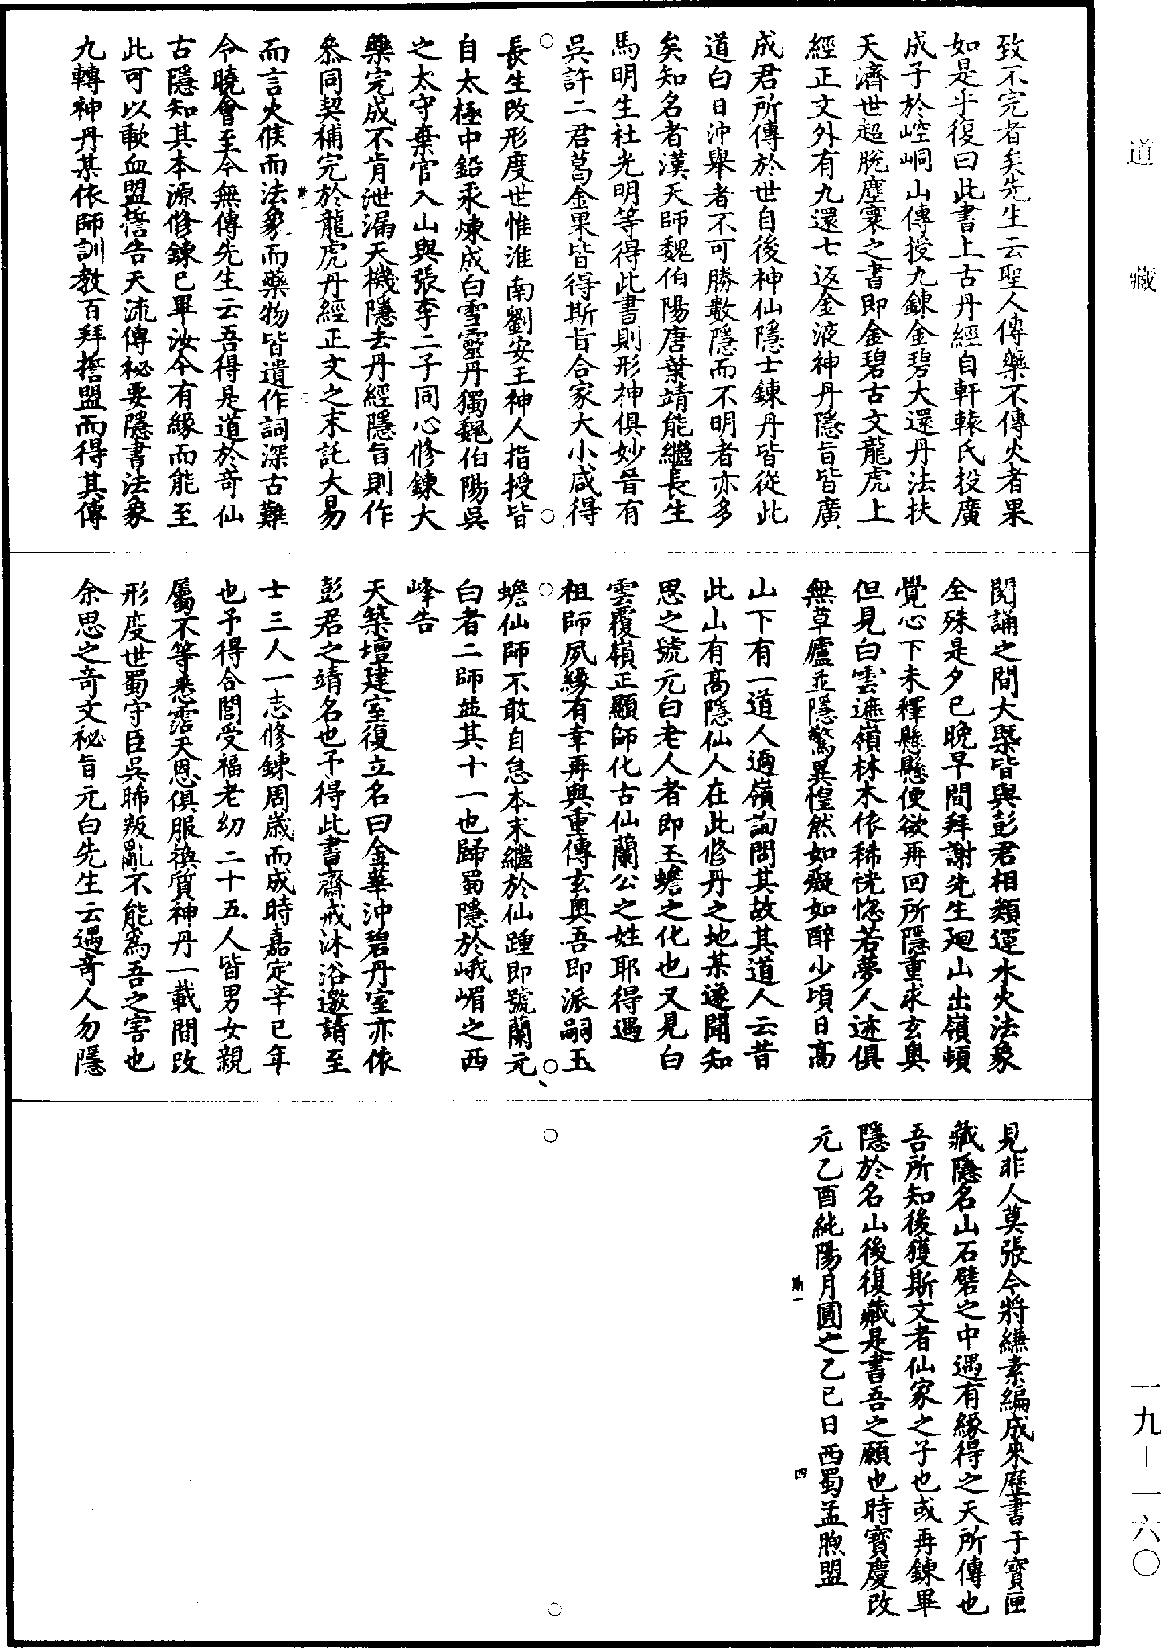 道藏
致不完者矣先生云聖人傳藥不傳火者果
如是乎復曰此書上古丹經自軒轅氏投廣
成子於崆峒山傳授九鍊金碧大還丹法扶
天濟世超脫塵寰之書即金碧古文龍虎上
經正文外有九還七返金液神丹隱旨皆廣
成君所傳於世自後神仙隱士鍊丹皆從此
道白日沖舉者不可勝數隱而不明者亦多
矣知名者漢天師魏伯陽唐葉靖能繼長生
馬明生杜光明等得此書則形神俱妙晉有
吳許二君葛金果皆得斯旨合家大小咸得
長生改形度世惟淮南劉安王神人指授皆
自太極中鉛汞煉成白雪靈丹獨魏伯陽吳
之太守棄官入山與張李二子同心修鍊大
藥完成不肯泄漏天機隱去丹經隱旨則作
叅同契補完於龍虎丹經正文之末託大易
而言火候而法象而藥物皆遺作詞深古難
今曉會至今無傳先生云吾得是道於奇仙
古隱知其本源修鍊已畢汝今有緣而能至
此可以歃血盟誓告天流傳秘要隱書法象
九轉神丹某依師訓教百拜誓盟而得其傳
閱誦之間大槩皆與彭君相類逕水火法象
全殊是夕已晚早間拜謝先生廻山出嶺頓
覺心下未釋懸懸便欲再回所隱重求玄奧
但見白雲遮嶺林木依稀恍惚若夢人迹俱
無草廬並隱驚異惶然如癡如醉少頃日高
山下有一道人過嶺詢問其故其道人云昔
此山有高隱仙人在此修丹之地某遂聞知
思之號元白老人者即玉蟾之化也又見白
雲覆嶺正顯師化古仙蘭公之姓耶得遇
祖師夙緣有幸再興重傳玄奧吾即派嗣玉
蟾仙師不敢自怠本末繼於仙踵即號蘭元
白者二師並其十一也歸蜀隱於峨嵋之西
峰告
天築壇建室復立名曰金華沖碧丹室亦依
彭君之靖名也予得此書齋戒沐浴邀請至
士三人一志修鍊周歲而成時嘉定辛巳年
也予得合閤受福老幼二十五人皆男女親
屬不等悉霑天恩俱服換質神丹一載間改
形度世蜀守臣吳昲叛亂不能為吾之害也
余思之奇文秘旨元白先生云遇奇人勿隱
見非人莫張今將縑素編成來歷書于寶匣
藏隱名山石壁之中遇有緣得之天所傳也
吾所知後獲斯文者仙家之子也或再鍊畢
隱於名山後復藏是書吾之願也時寶慶改
元乙酉純陽月圓之乙巳日西蜀孟煦盟
斯一
四
一九—一六〇